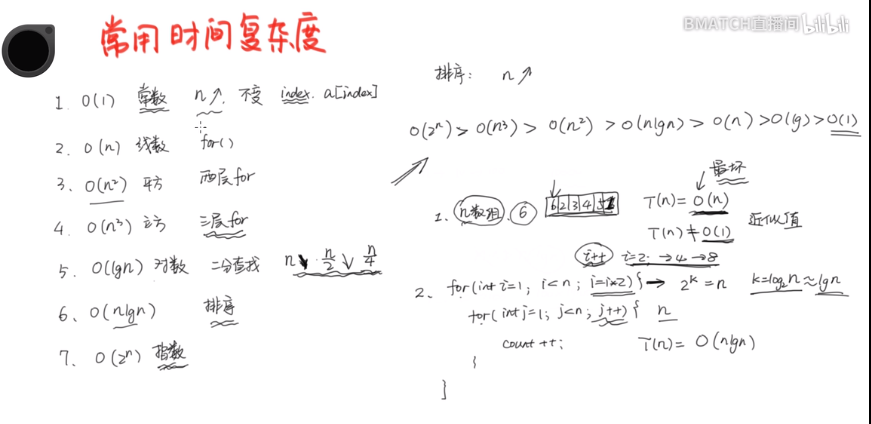 常用时间复杂度
BMATCH直播间 bilibili
1. O(1) 常数 n↗. 不变 index. a[index]
2. O(n) 线数 for()
3. O(n²) 平方 两层for
4. O(n³) 立方 三层for
5. O(lgn) 对数 二分查找 n↘ · n/2 ↓ n/4
6. O(nlgn) 排序
7. O(2ⁿ) 指数
排序: n↗
O(2ⁿ) > O(n³) > O(n²) > O(nlgn) > O(n) > O(lg) > O(1)
最坏
1. n数组. 6 6 2 3 4 5 T(n) = O(n)
T(n) ≠ O(1) 近似值
i++ i=2; → 4 → 8
2. for(int i=1; i<n; i=i×2){ → 2ᵏ = n k=log₂n≈lgn
for(int j=1; j<n; j++){ n
count++; T(n) = O(nlgn)
}
}